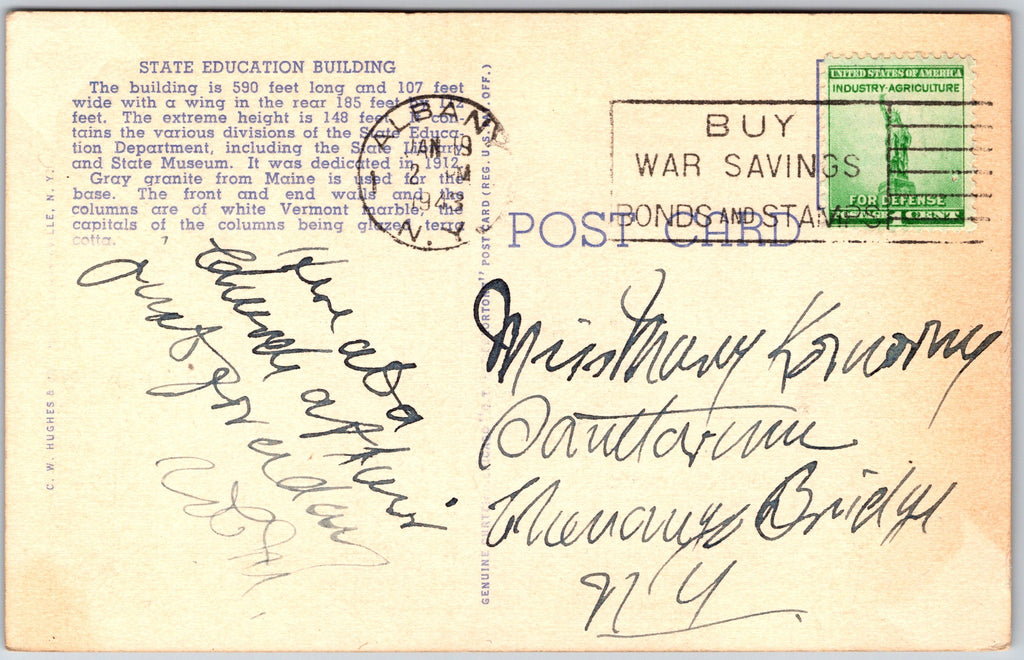 STATE EDUCATION BUILDING
The building is 590 feet long and 107 feet
wide with a wing in the rear 185 feet
feet. The extreme height is 148 feet. It con-
tains the various divisions of the State Educa-
tion Department, including the State Library
and State Museum. It was dedicated in 1912.
Gray granite from Maine is used for the
base. The front and end walls and the
columns are of white Vermont marble, the
capitals of the columns being glazed terra
cotta.
ALBANY
JAN 19
2 PM
1943
N.Y.
BUY
WAR SAVINGS
BONDS AND STAMPS
UNITED STATES OF AMERICA
INDUSTRY·AGRICULTURE
FOR DEFENSE
1 CENT 1
POST CARD
C. W. HUGHES &
LLE, N. Y.
GENUINE
POST CARD (REG. U. S.
OFF.)
Here at a
at their
just for a day
Miss Mary
Chenango Bridge
N Y.